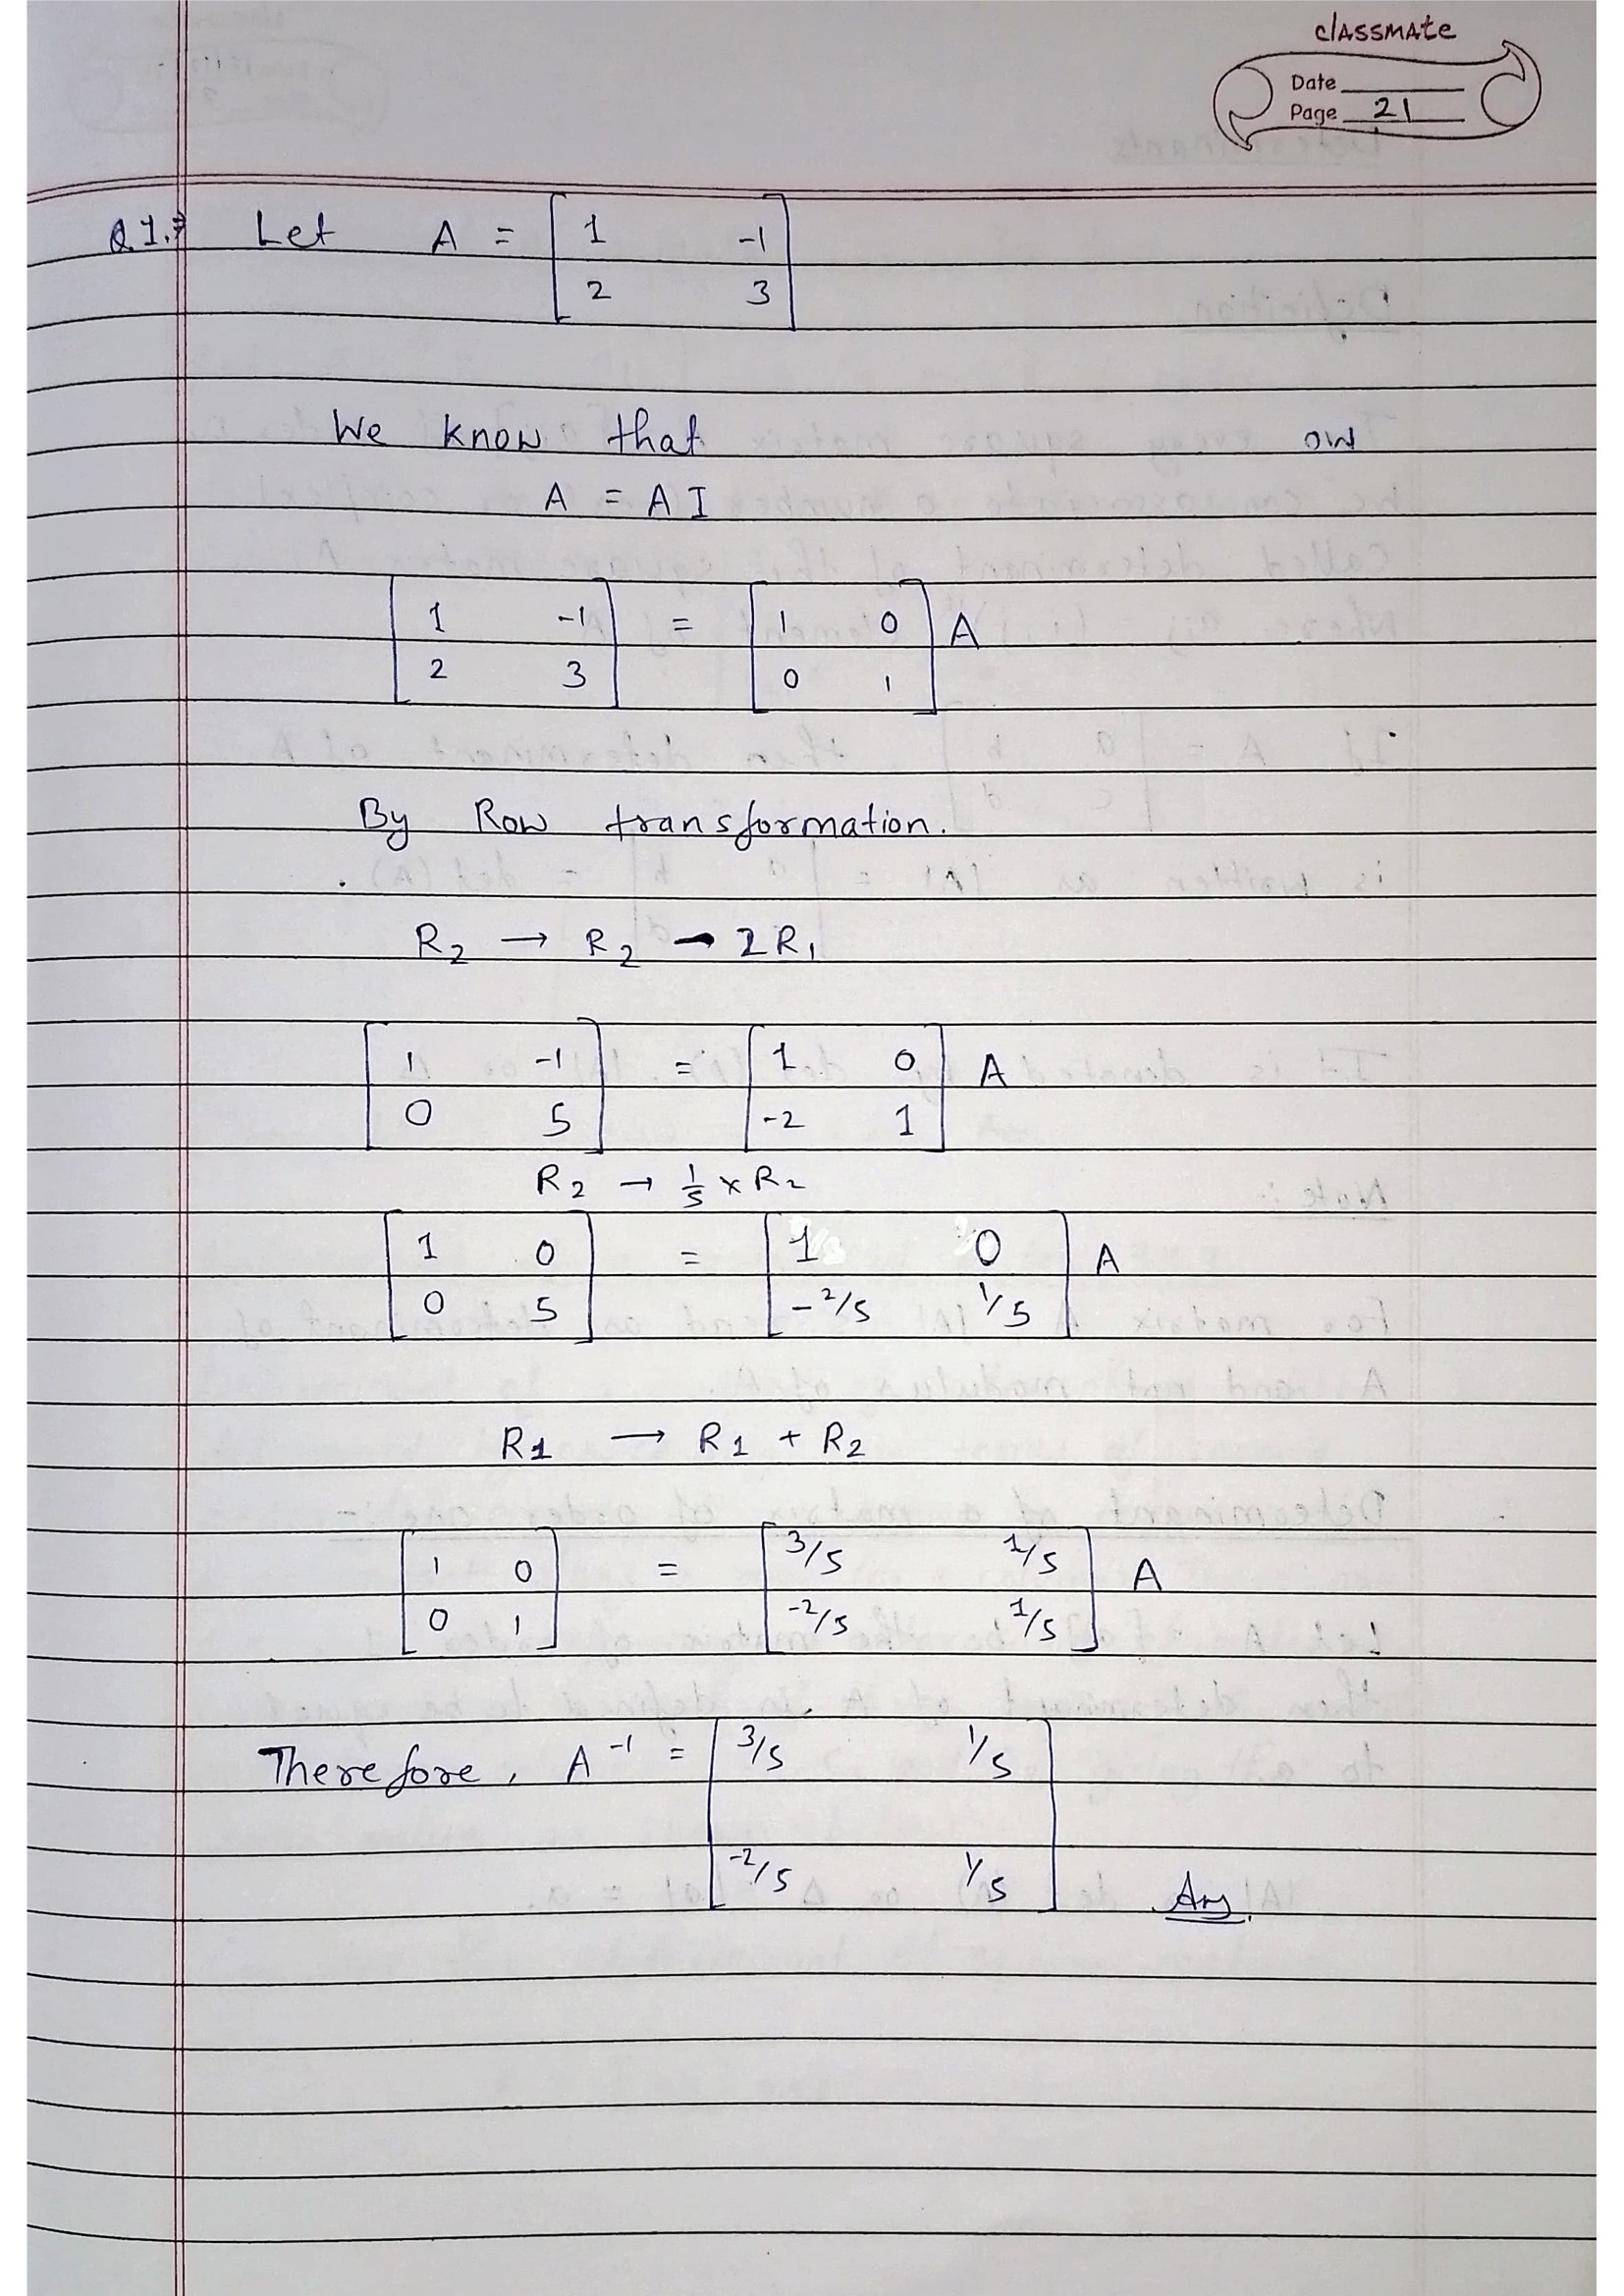 classmate
Date
Page 21
Q1.⇒ Let A = [ 1 -1
2 3 ]
We know that
A = A I
[ 1 -1
2 3 ] = [ 1 0
0 1 ] A
By Row transformation.
R2 → R2 - 2R1
[ 1 -1
0 5 ] = [ 1 0
-2 1 ] A
R2 → 1/5 × R2
[ 1 0
0 5 ] = [ 1 0
-2/5 1/5 ] A
R1 → R1 + R2
[ 1 0
0 1 ] = [ 3/5 1/5
-2/5 1/5 ] A
Therefore, A⁻¹ = [ 3/5 1/5
-2/5 1/5 ] Ans.